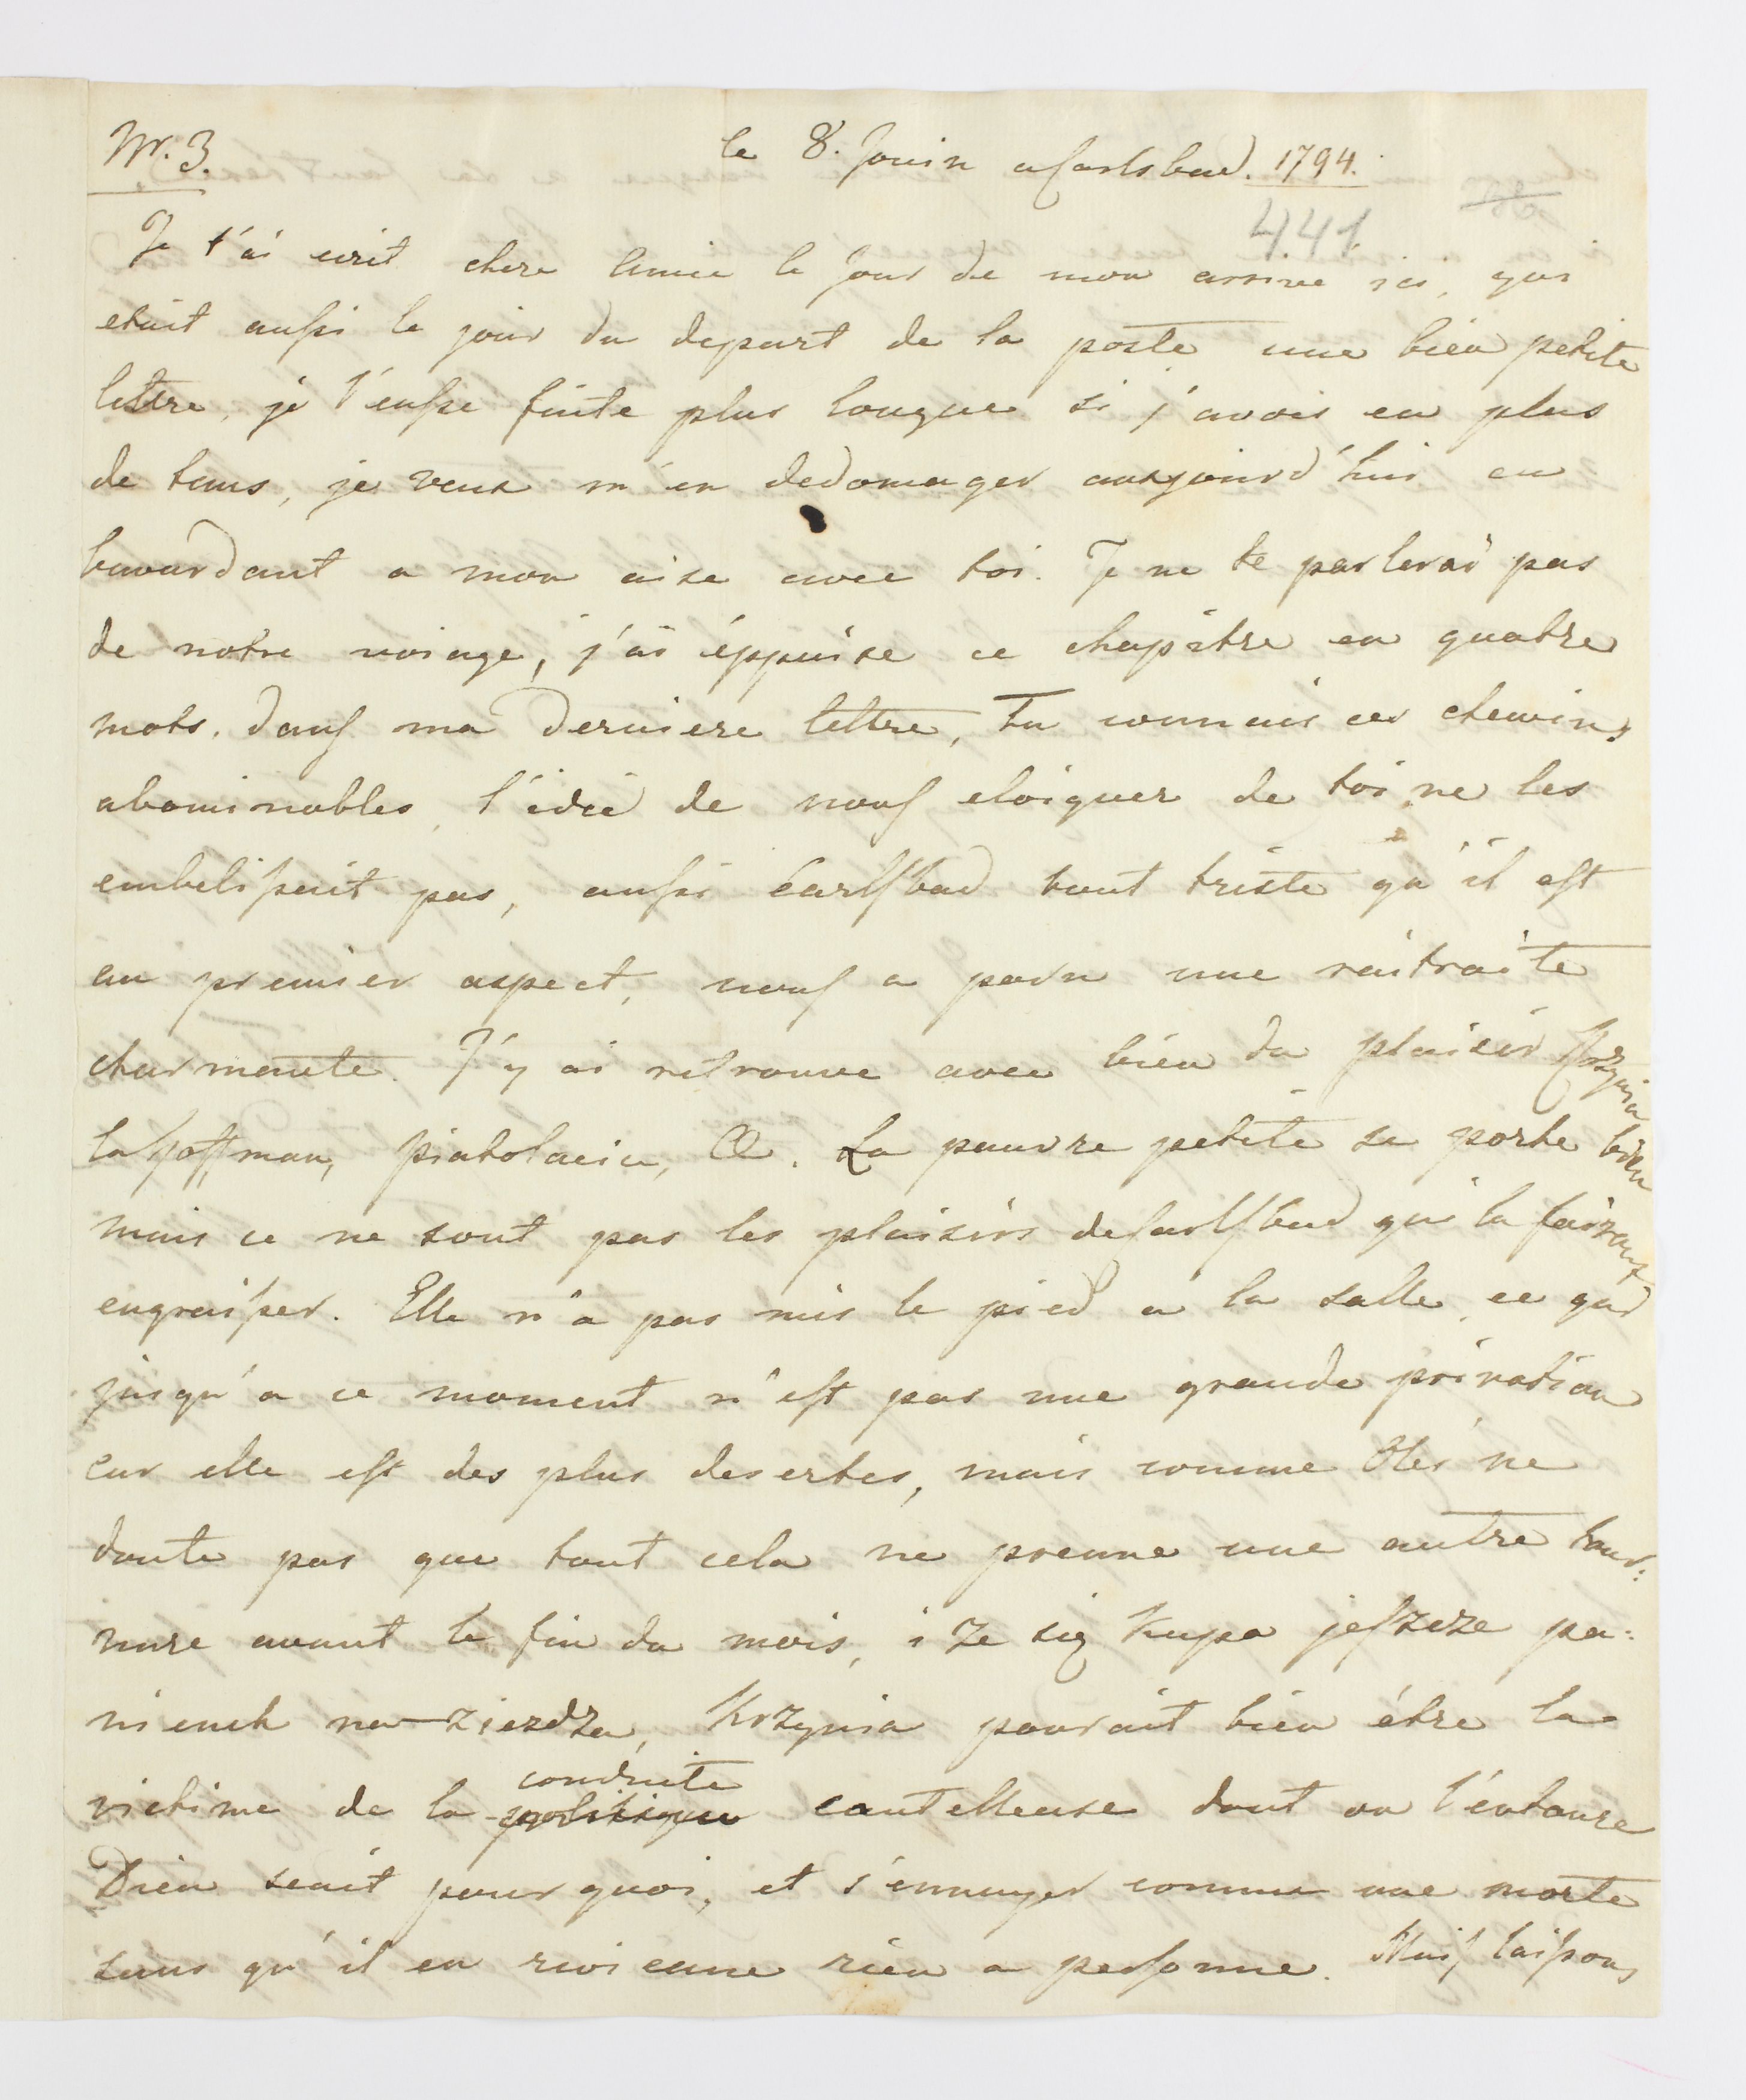 Nr. 3. le 8. Jouin a Carlsbad. 1794.
441
Je t'ai ecrit chere Amie le jour de mon arrivee ici, qui
etait aussi le jour du depart de la poste une bien petite
lettre, je l'eusse faite plus longue si j'avois eu plus
de tems, je veux m'en dedomager auxjourd'hui en
bavardant a mon aise avec toi. Je ne te parlerai pas
de notre voiage, j'ai éppuise ce chapitre en quatre
mots. dans ma derniere lettre, Tu connais ces chemins
abominables, l'idée de nous eloigner de toi ne les
embelissait pas, aussi Carlsbad tout triste qu'il est
au premier aspect, nous a paru une raitraite
charmante. J'y ai retrouve avec bien du plaisir Krzynia
la Hoffman, Piatolacia, &. La pauvre petite se porte bien
mais ce ne sont pas les plaisirs de Carlsbad qui la fairont
engraisser. Elle n'a pas mis le pied a la salle, ce qui
jusqu'a ce moment n'est pas une grande privation
car elle est des plus desertes, mais comme on ne
doute pas que tout cela ne prenne une autre tour:
nure avant la fin du mois, i ze się kupa jeszcze pa:
nienek na-ziezdza, Krzynia pourait bien étre la
victime de la politique conduite cautelleuse dont on l'entoure
Dieu scait pourquoi, et s'ennuyer comme une morte
sans qu'il en revienne rien a personne. Mais laissons